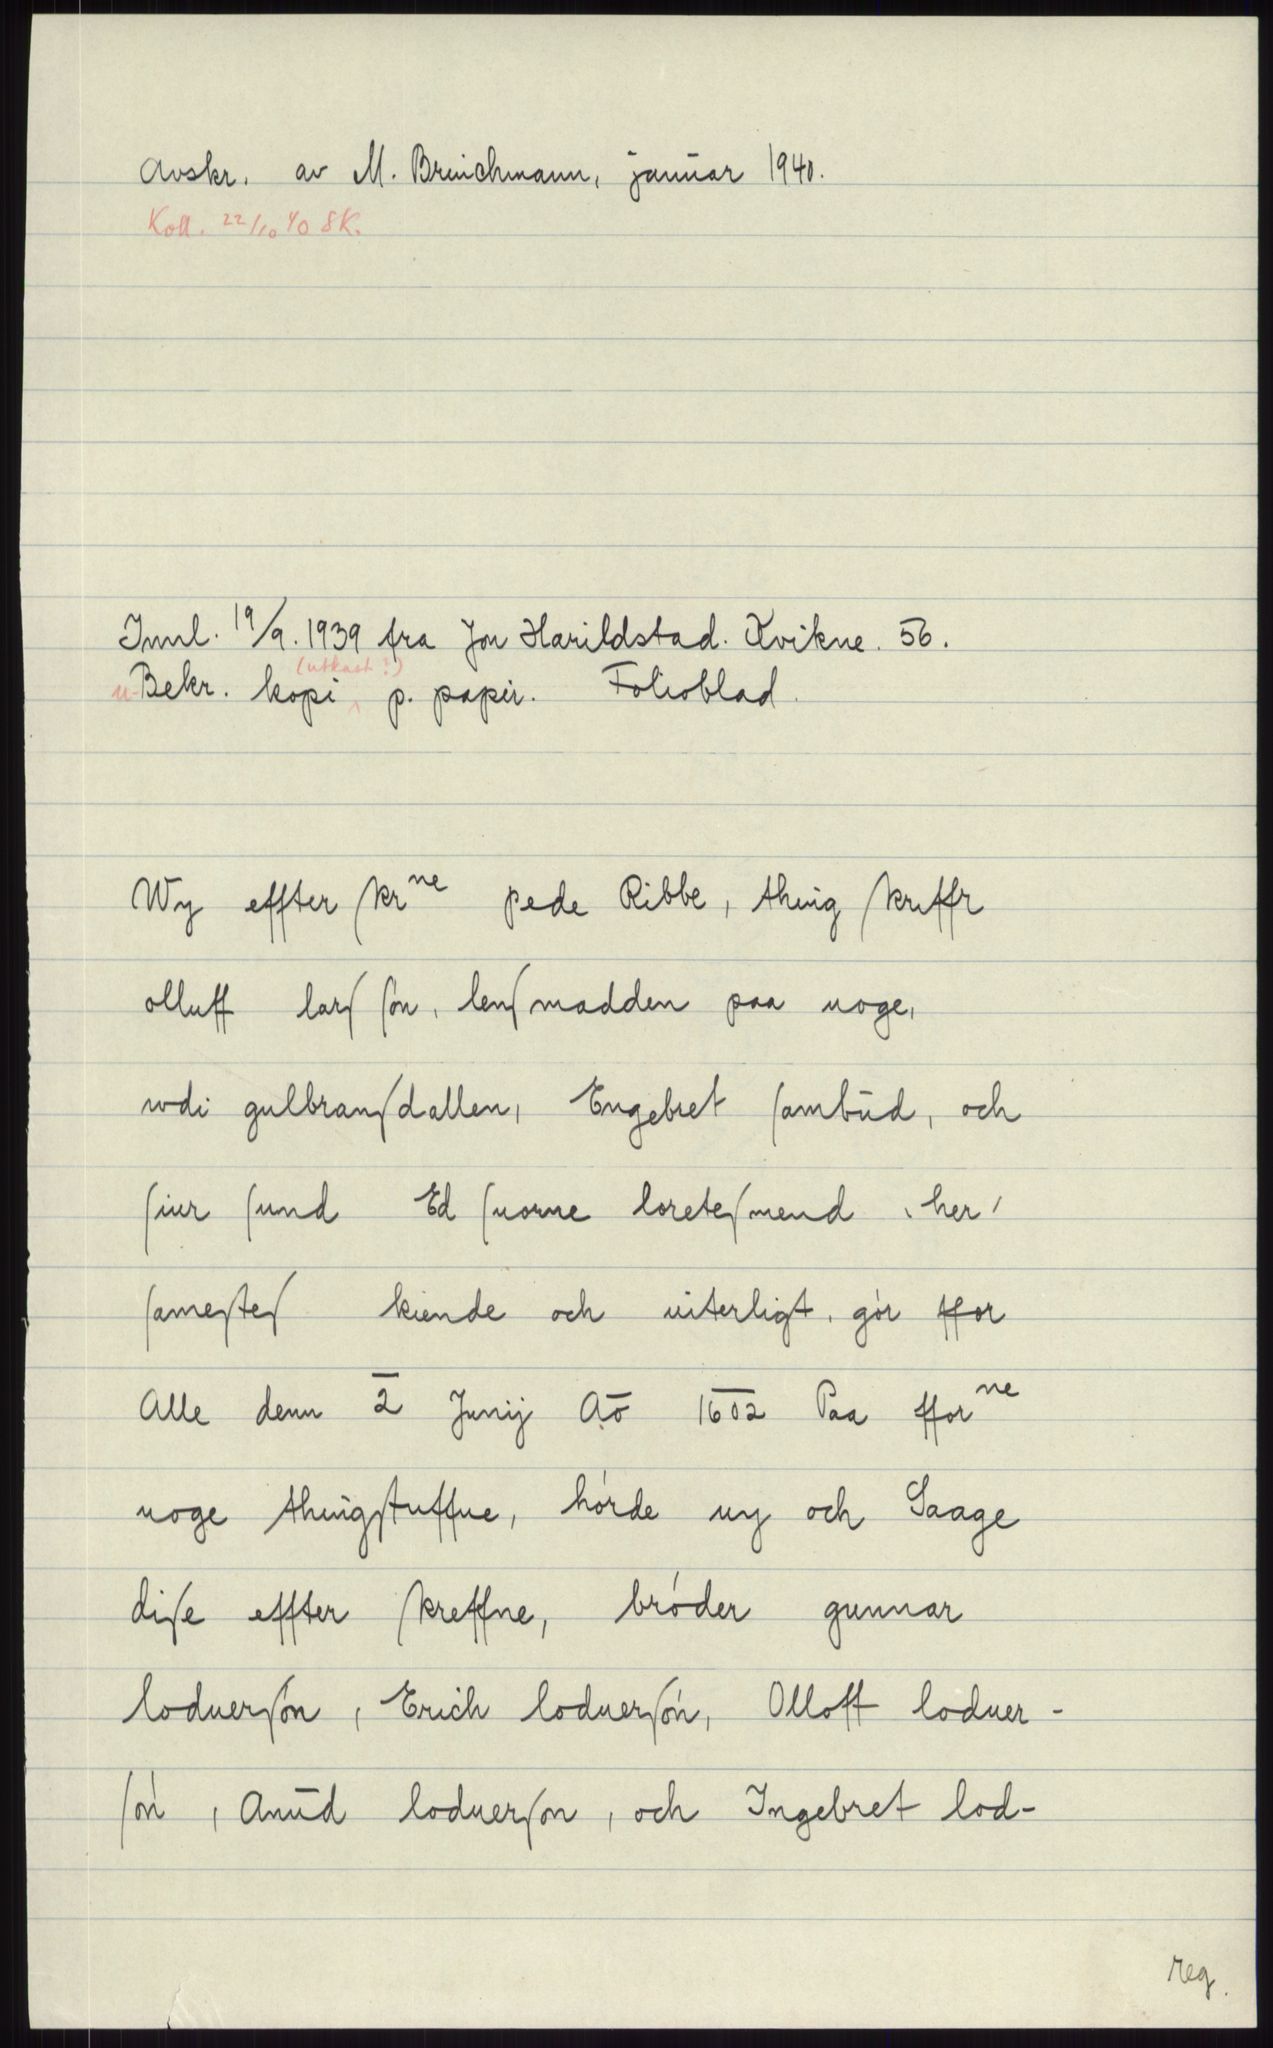 Avskr. av M. Brinchmann, januar 1940.
Koll. 22/10 40 SK.
Innl. 19/9. 1939 fra Jon Harildstad. Kvikne. 56.
(utkast?)
u-Bekr. kopi ^ p. papir. Folioblad.
Wy effter ſkrⁿᵉ pede Ribbe, thing ſkriffr
olluff larſ ſøn, lenſmadden paa uoge,
wdi gulbranſdallen, Engebret ſambŭd, och
ſiur ſund Ed ſuorne loreteſmend, her,
ſameſteſ kiende och uiterligt, gór ffor
Alle denn 2̅ Junij Aō 1602 Paa fforⁿᵉ
uoge thingſtuffue, hórde uy och Saage
diſe effter ſkreffne, bróder gunnar
loduerſón, Erich loduerſón, Olloff loduer-
ſón, Anŭd loduerſon, och Ingebret lod-
reg.